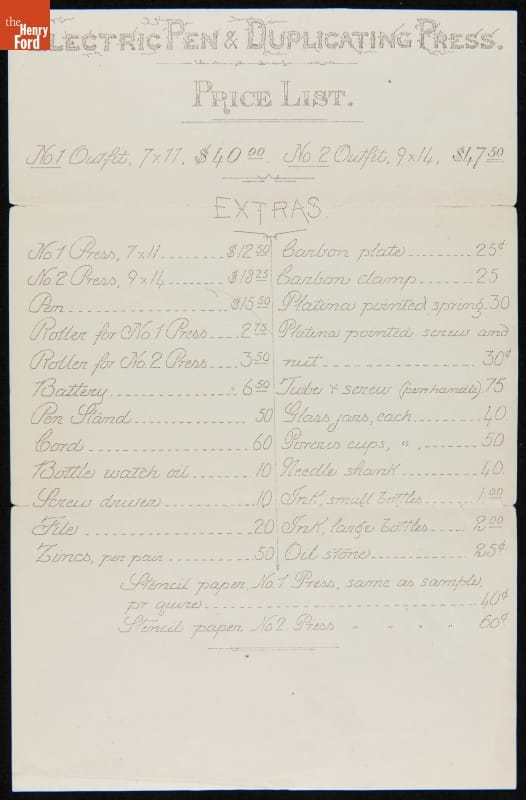 the
Henry
Ford
Electric Pen & Duplicating Press.
Price List.
No. 1 Outfit, 7x11, $40 00 No. 2 Outfit, 9x14, $47.50
EXTRAS
No. 1 Press, 7x11 $12 50
No. 2 Press, 9x14 $18 25
Pen $15 50
Roller for No. 1 Press 2 75
Roller for No. 2 Press 3 50
Battery 6 50
Pen Stand 50
Cord 60
Bottle watch oil 10
Screw driver 10
File 20
Zincs, per pair 50
Carbon plate 25¢
Carbon clamp 25
Platina pointed spring 30
Platina pointed screw and
nut 30¢
Tube & screw (pen handle) 75
Glass jars, each 40
Porous cups, " 50
Needle shank 40
Ink, small bottles 1 00
Ink, large bottles 2 00
Oil stone 25¢
Stencil paper, No. 1 Press, same as sample,
pr quire 40¢
Stencil paper No. 2 Press " " " " 60¢